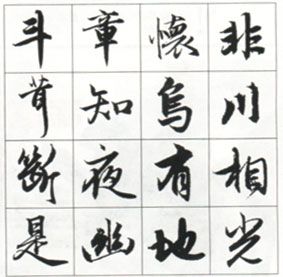 斗章懷非
茸知烏川
斷夜有相
是幽地光